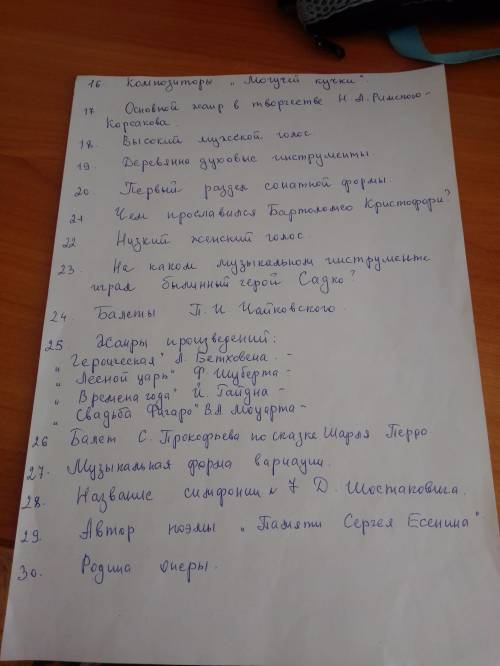 16 Композиторы „Могучей кучки".
17 Основной жанр в творчестве Н.А.Римского-
Корсакова.
18. Высокий мужской голос.
19. Деревянно духовые инструменты.
20. Первый раздел сонатной формы.
21 Чем прославился Бартоломео Кристофори?
22 Низкий женский голос.
23. На каком музыкальном инструменте
играл былинный герой Садко?
24. Балеты П.И Чайковского.
25 Жанры произведений:
„Героическая" Л. Бетховена. -
„Лесной царь" Ф. Шуберта -
„Времена года" Й. Гайдна -
„Свадьба Фигаро" В.А. Моцарта -
26 Балет С. Прокофьева по сказке Шарля Перро
27. Музыкальная форма вариации.
28. Название симфонии № 7 Д. Шостаковича.
29. Автор поэмы „Памяти Сергея Есенина"
30. Родина оперы.